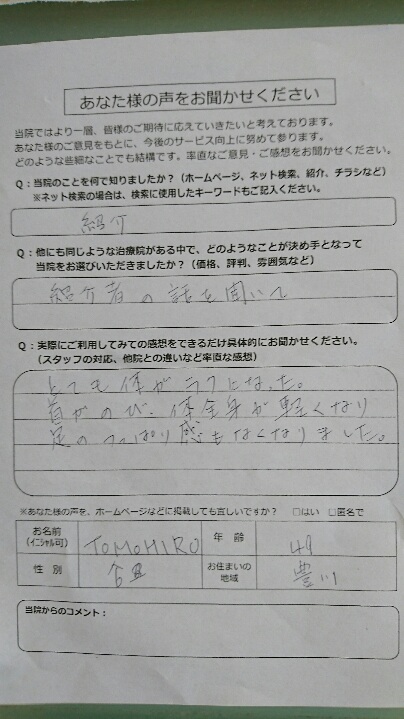 あなた様の声をお聞かせください
当院ではより一層、皆様のご期待に応えていきたいと考えております。
あなた様のご意見をもとに、今後のサービス向上に努めて参ります。
どのような些細なことでも結構です。率直なご意見・ご感想をお聞かせください。
Q：当院のことを何で知りましたか？（ホームページ、ネット検索、紹介、チラシなど）
※ネット検索の場合は、検索に使用したキーワードもご記入ください。
紹介
Q：他にも同じような治療院がある中で、どのようなことが決め手となって
当院をお選びいただきましたか？（価格、評判、雰囲気など）
紹介者の話を聞いて
Q：実際にご利用してみての感想をできるだけ具体的にお聞かせください。
（スタッフの対応、他院との違いなど率直な感想）
とても体がラクになった。
首がのび、体全身が軽くなり
足のつっぱり感もなくなりました。
※あなた様の声を、ホームページなどに掲載しても宜しいですか？ □はい □匿名で
お名前（イニシャル可） TOMOHIRO 年 齢 49
性 別 お住まいの地域 豊川
当院からのコメント：